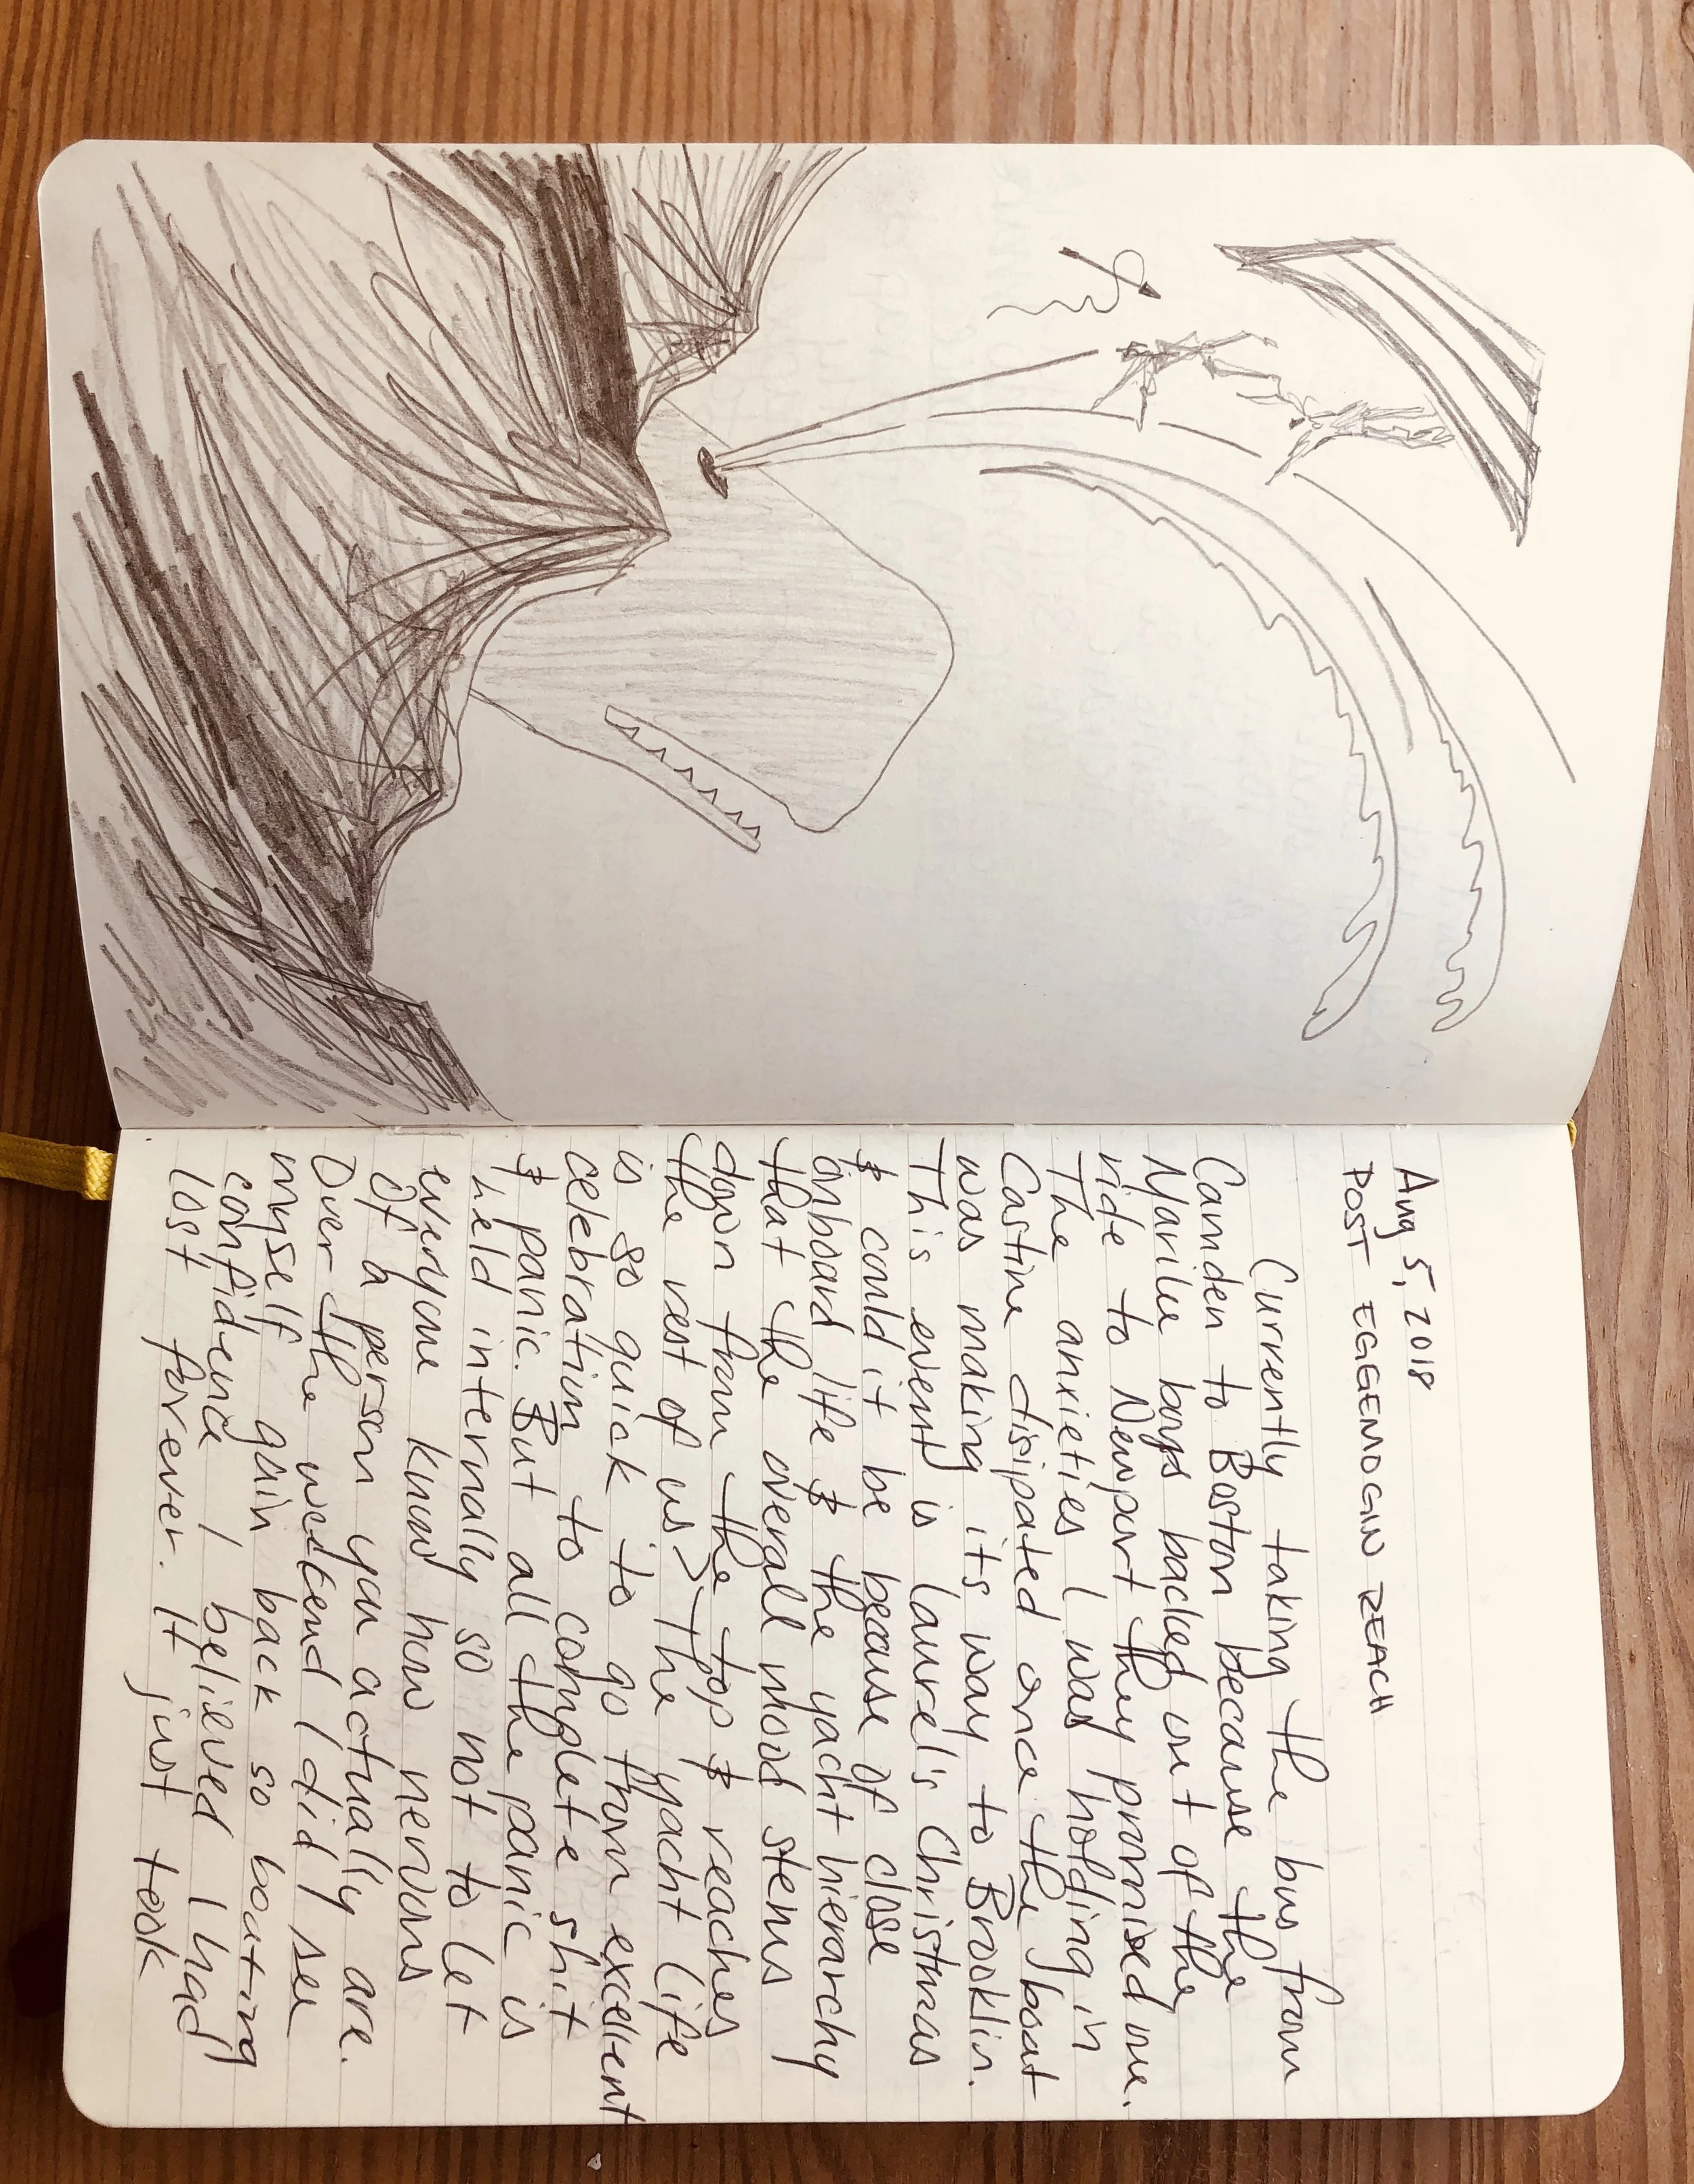 Aug 5, 2018
POST EGGEMOGIN REACH
Currently taking the bus from
Camden to Boston because the
Marilee boys backed out of the
ride to Newport they promised me.
The anxieties I was holding in
Castine disipated once the boat
was making its way to Brooklin.
This event is laurel's Christmas
& could it be because of close
onboard life & the yacht hierarchy
that the overall mood stems
down from the top & reaches
the rest of us> The yacht life
is so quick to go from excellent
celebration to complete shit
& panic. But all the panic is
held internally so not to let
everyone know how nervous
of a person you actually are.
Over the weekend I did see
myself gain back so boating
confidence I believed I had
lost forever. It just took